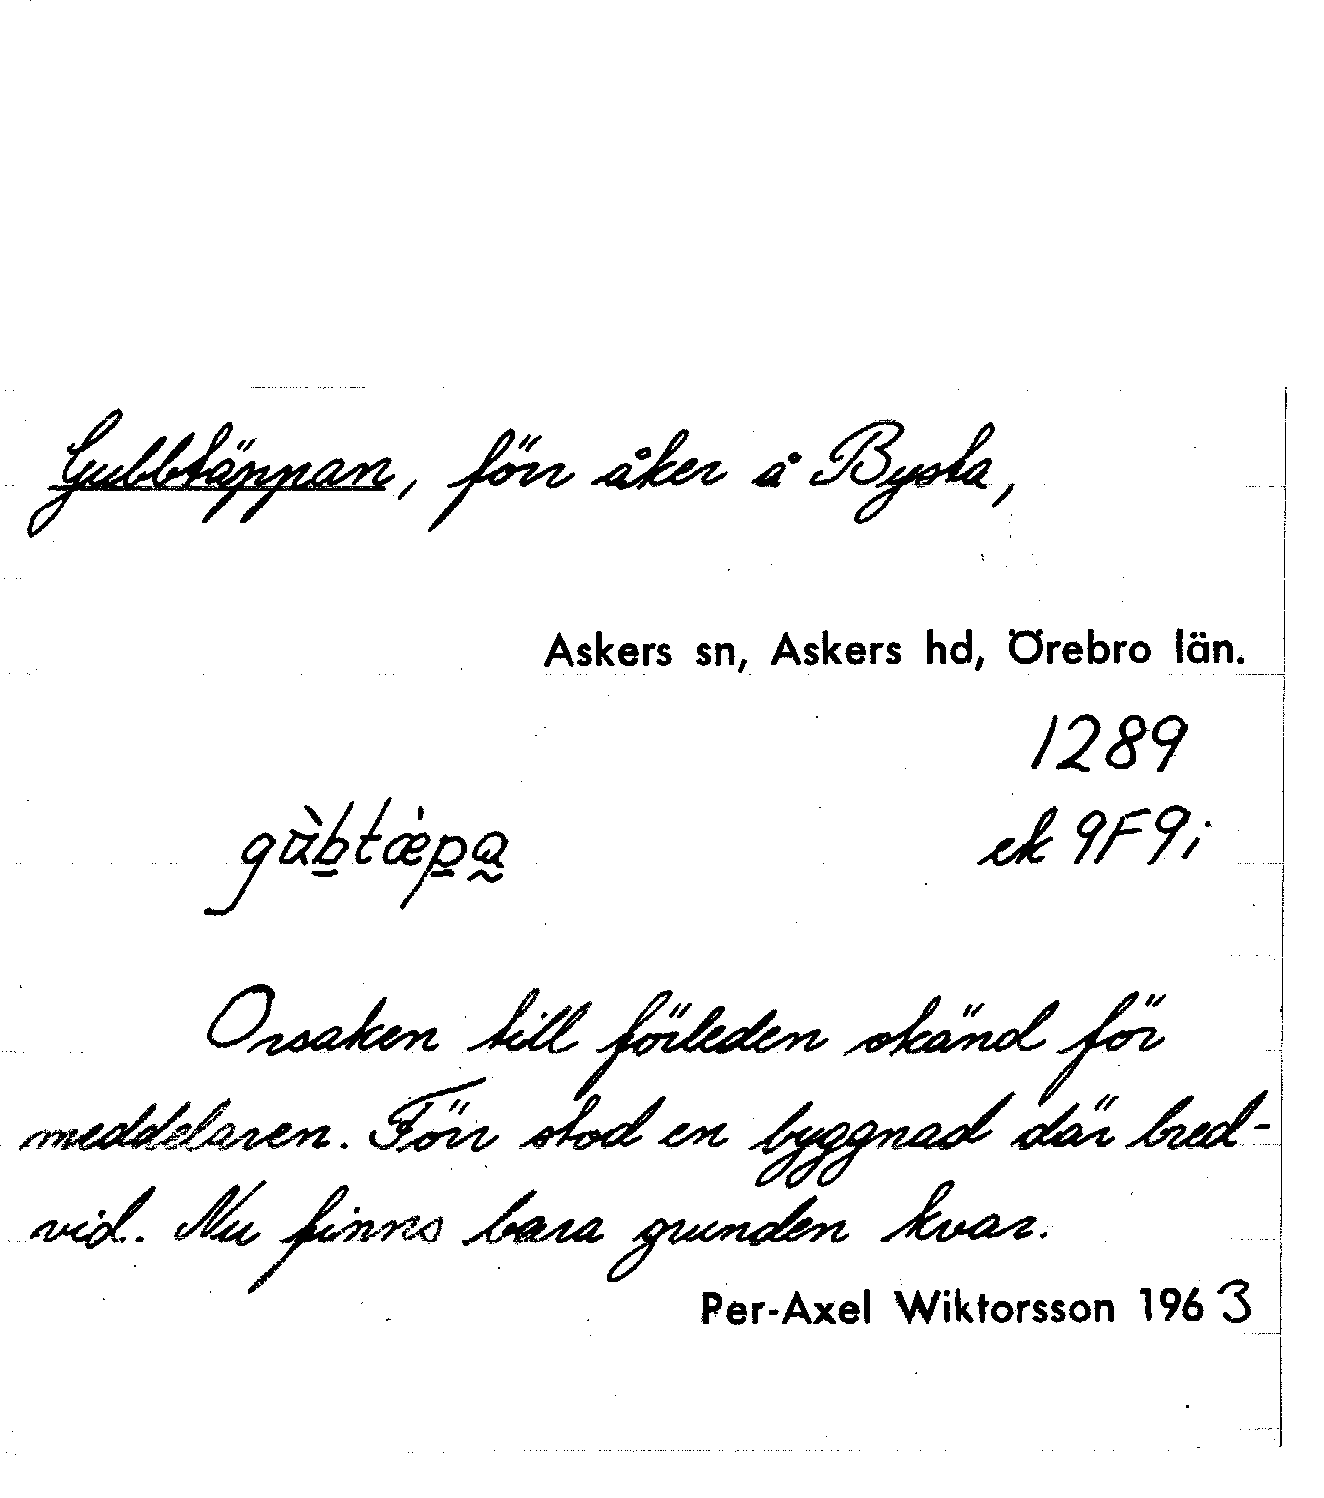 Gubbtäppan, förr åker å Bysta,
Askers sn, Askers hd, Örebro län.
1289
gùbtǽpa ek 9F9i
Orsaken till förleden okänd för
meddelaren. Förr stod en byggnad där bred-
vid. Nu finns bara grunden kvar.
Per-Axel Wiktorsson 1963